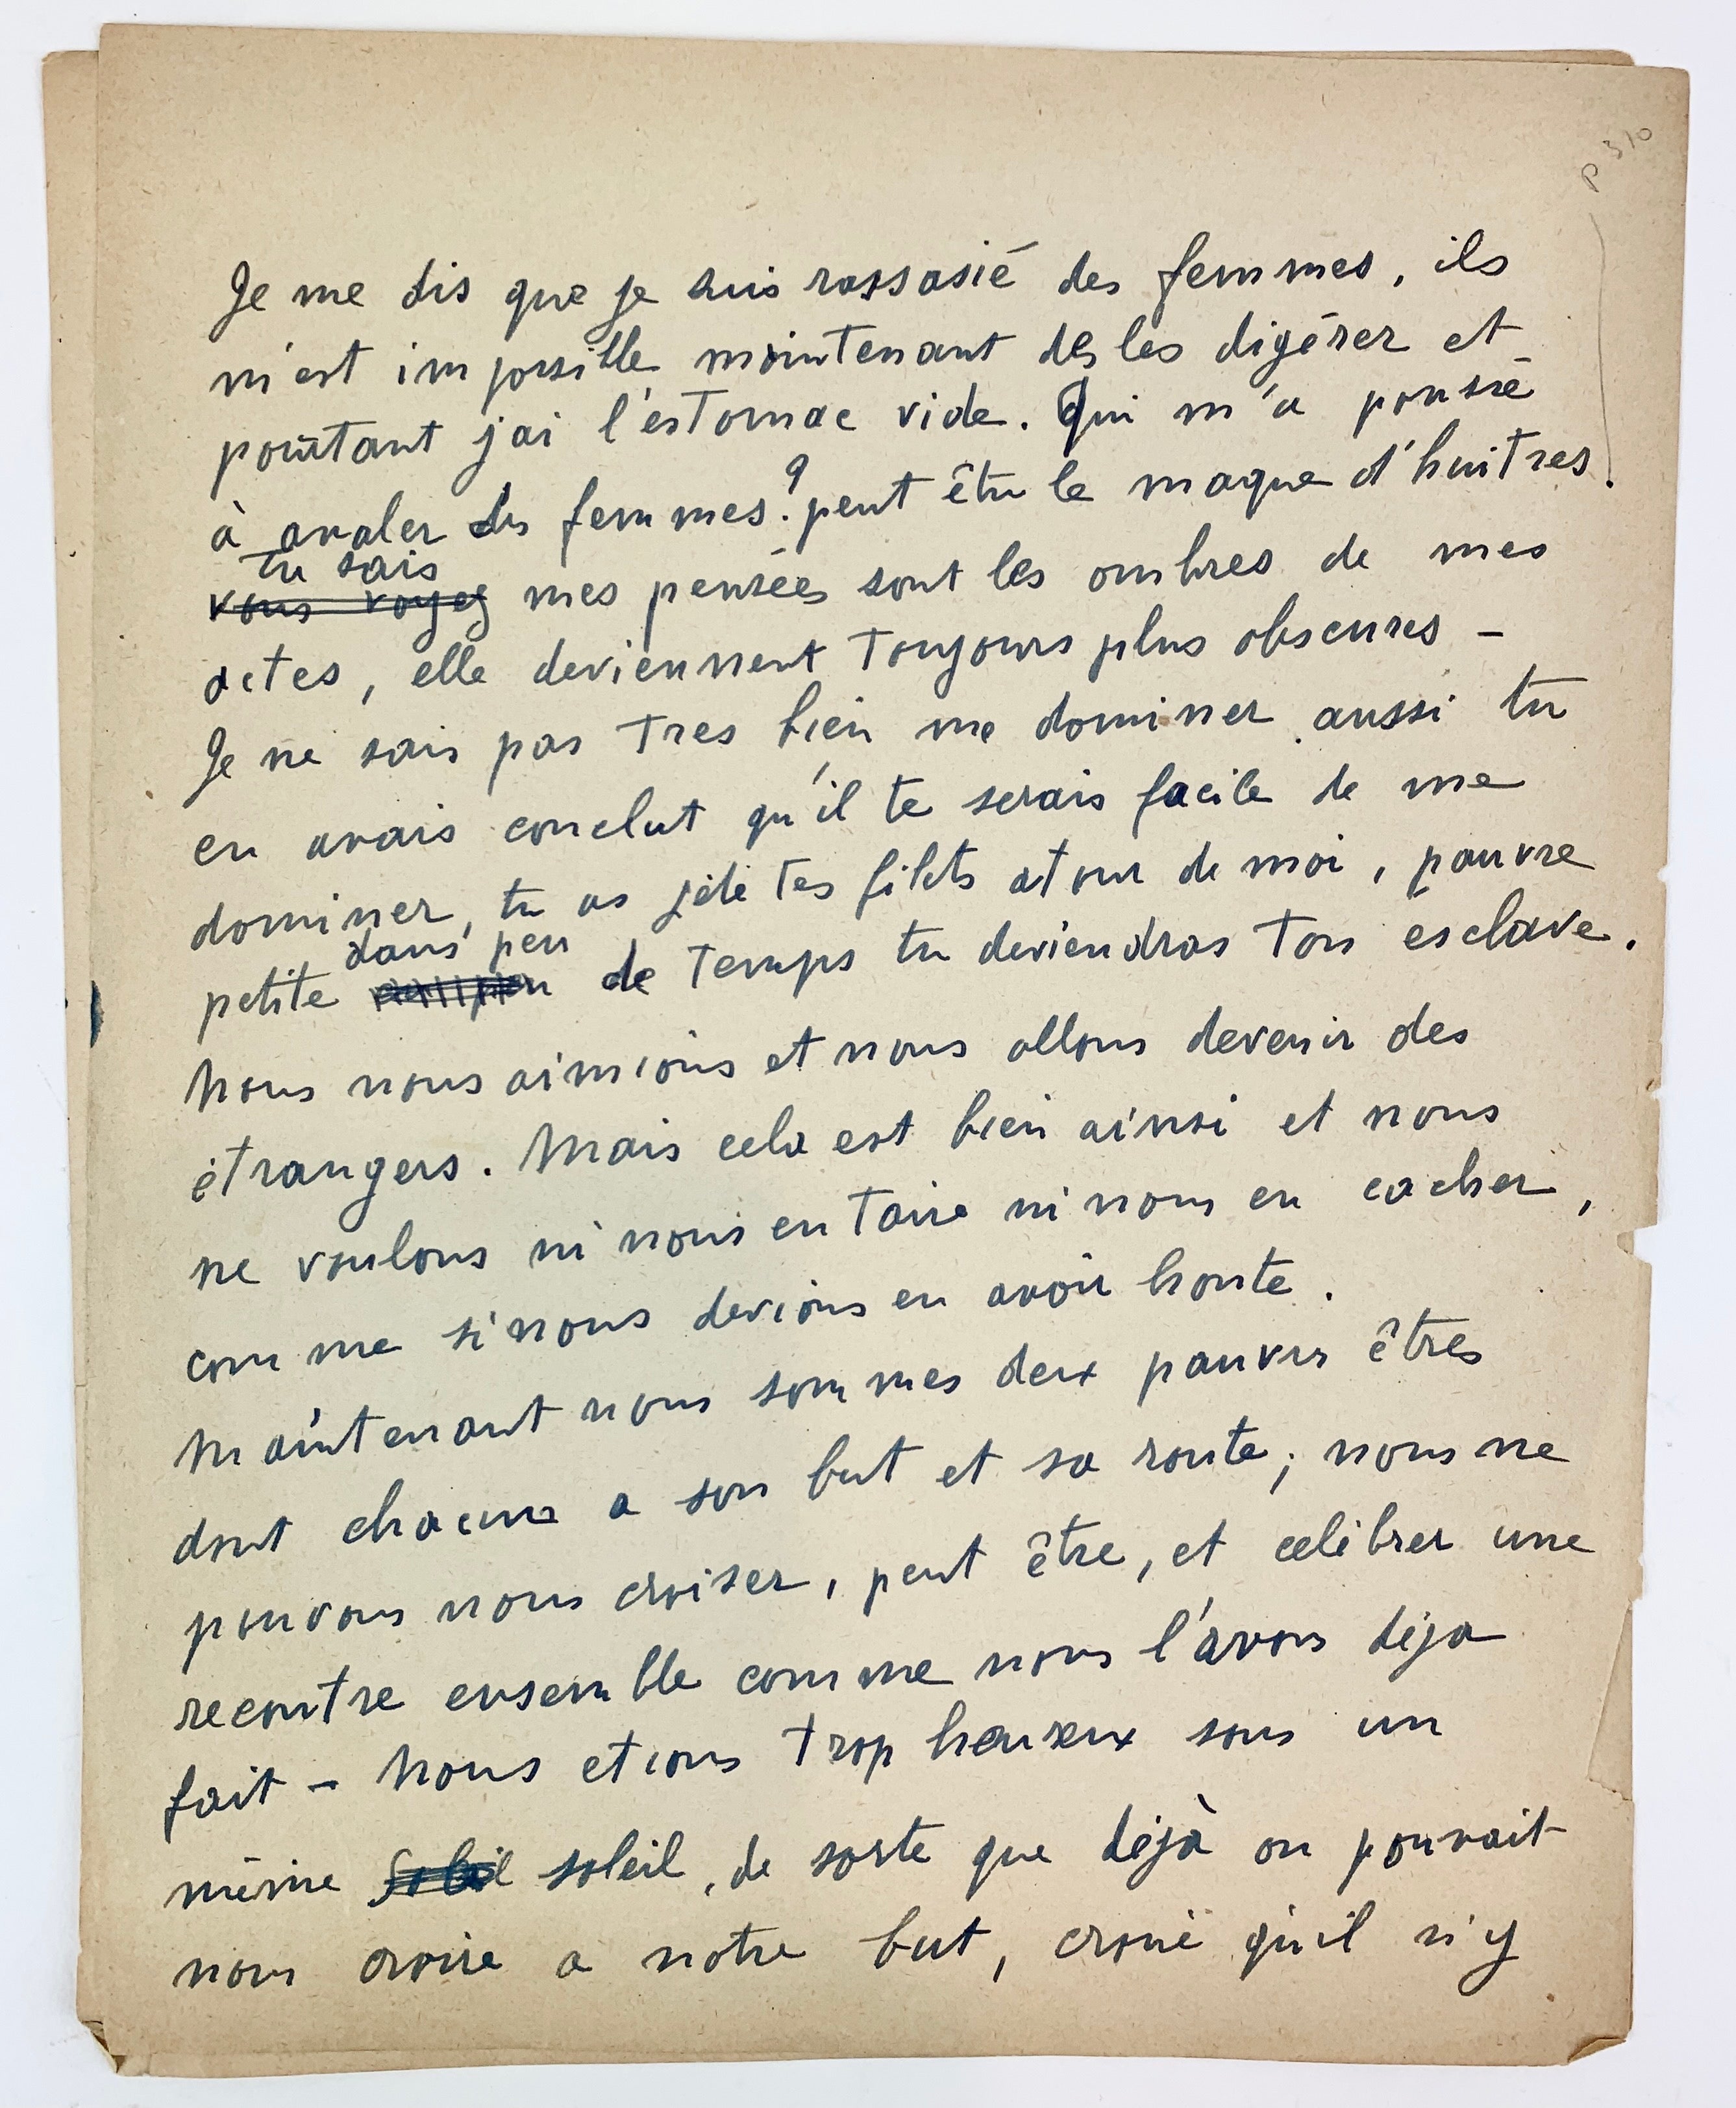 p 310
Je me dis que je suis rassasié des femmes, ils
m'est impossible maintenant des les digérer et
pourtant j'ai l'estomac vide. Qui m'a poussé
à avaler des femmes? peut être le maque d'huitres.
tu sais
vous voyez mes pensées sont les ombres de mes
actes, elle deviennent toujours plus obscures -
Je ne sais pas tres bien me dominer aussi tu
en avais conclut qu'il te serais facile de me
dominer, tu as jété tes filets atour de moi, pauvre
dans peu
petite de temps tu deviendras ton esclave.
Nous nous aimions et nous allons devenir des
étrangers. Mais cela est bien ainsi et nous
ne voulons ni nous en taire ni nous en cacher,
comme si nous devions en avoir honte.
Maintenant nous sommes deux pauvres êtres
dont chacune a son but et sa route; nous ne
pouvons nous croiser, peut être, et celébrer une
recontre ensemble comme nous l'avons déja
fait - Nous etions trop heureux sous un
même Soleil soleil, de sorte que déjà on pouvait
nous croire a notre but, croire qu'il n'y